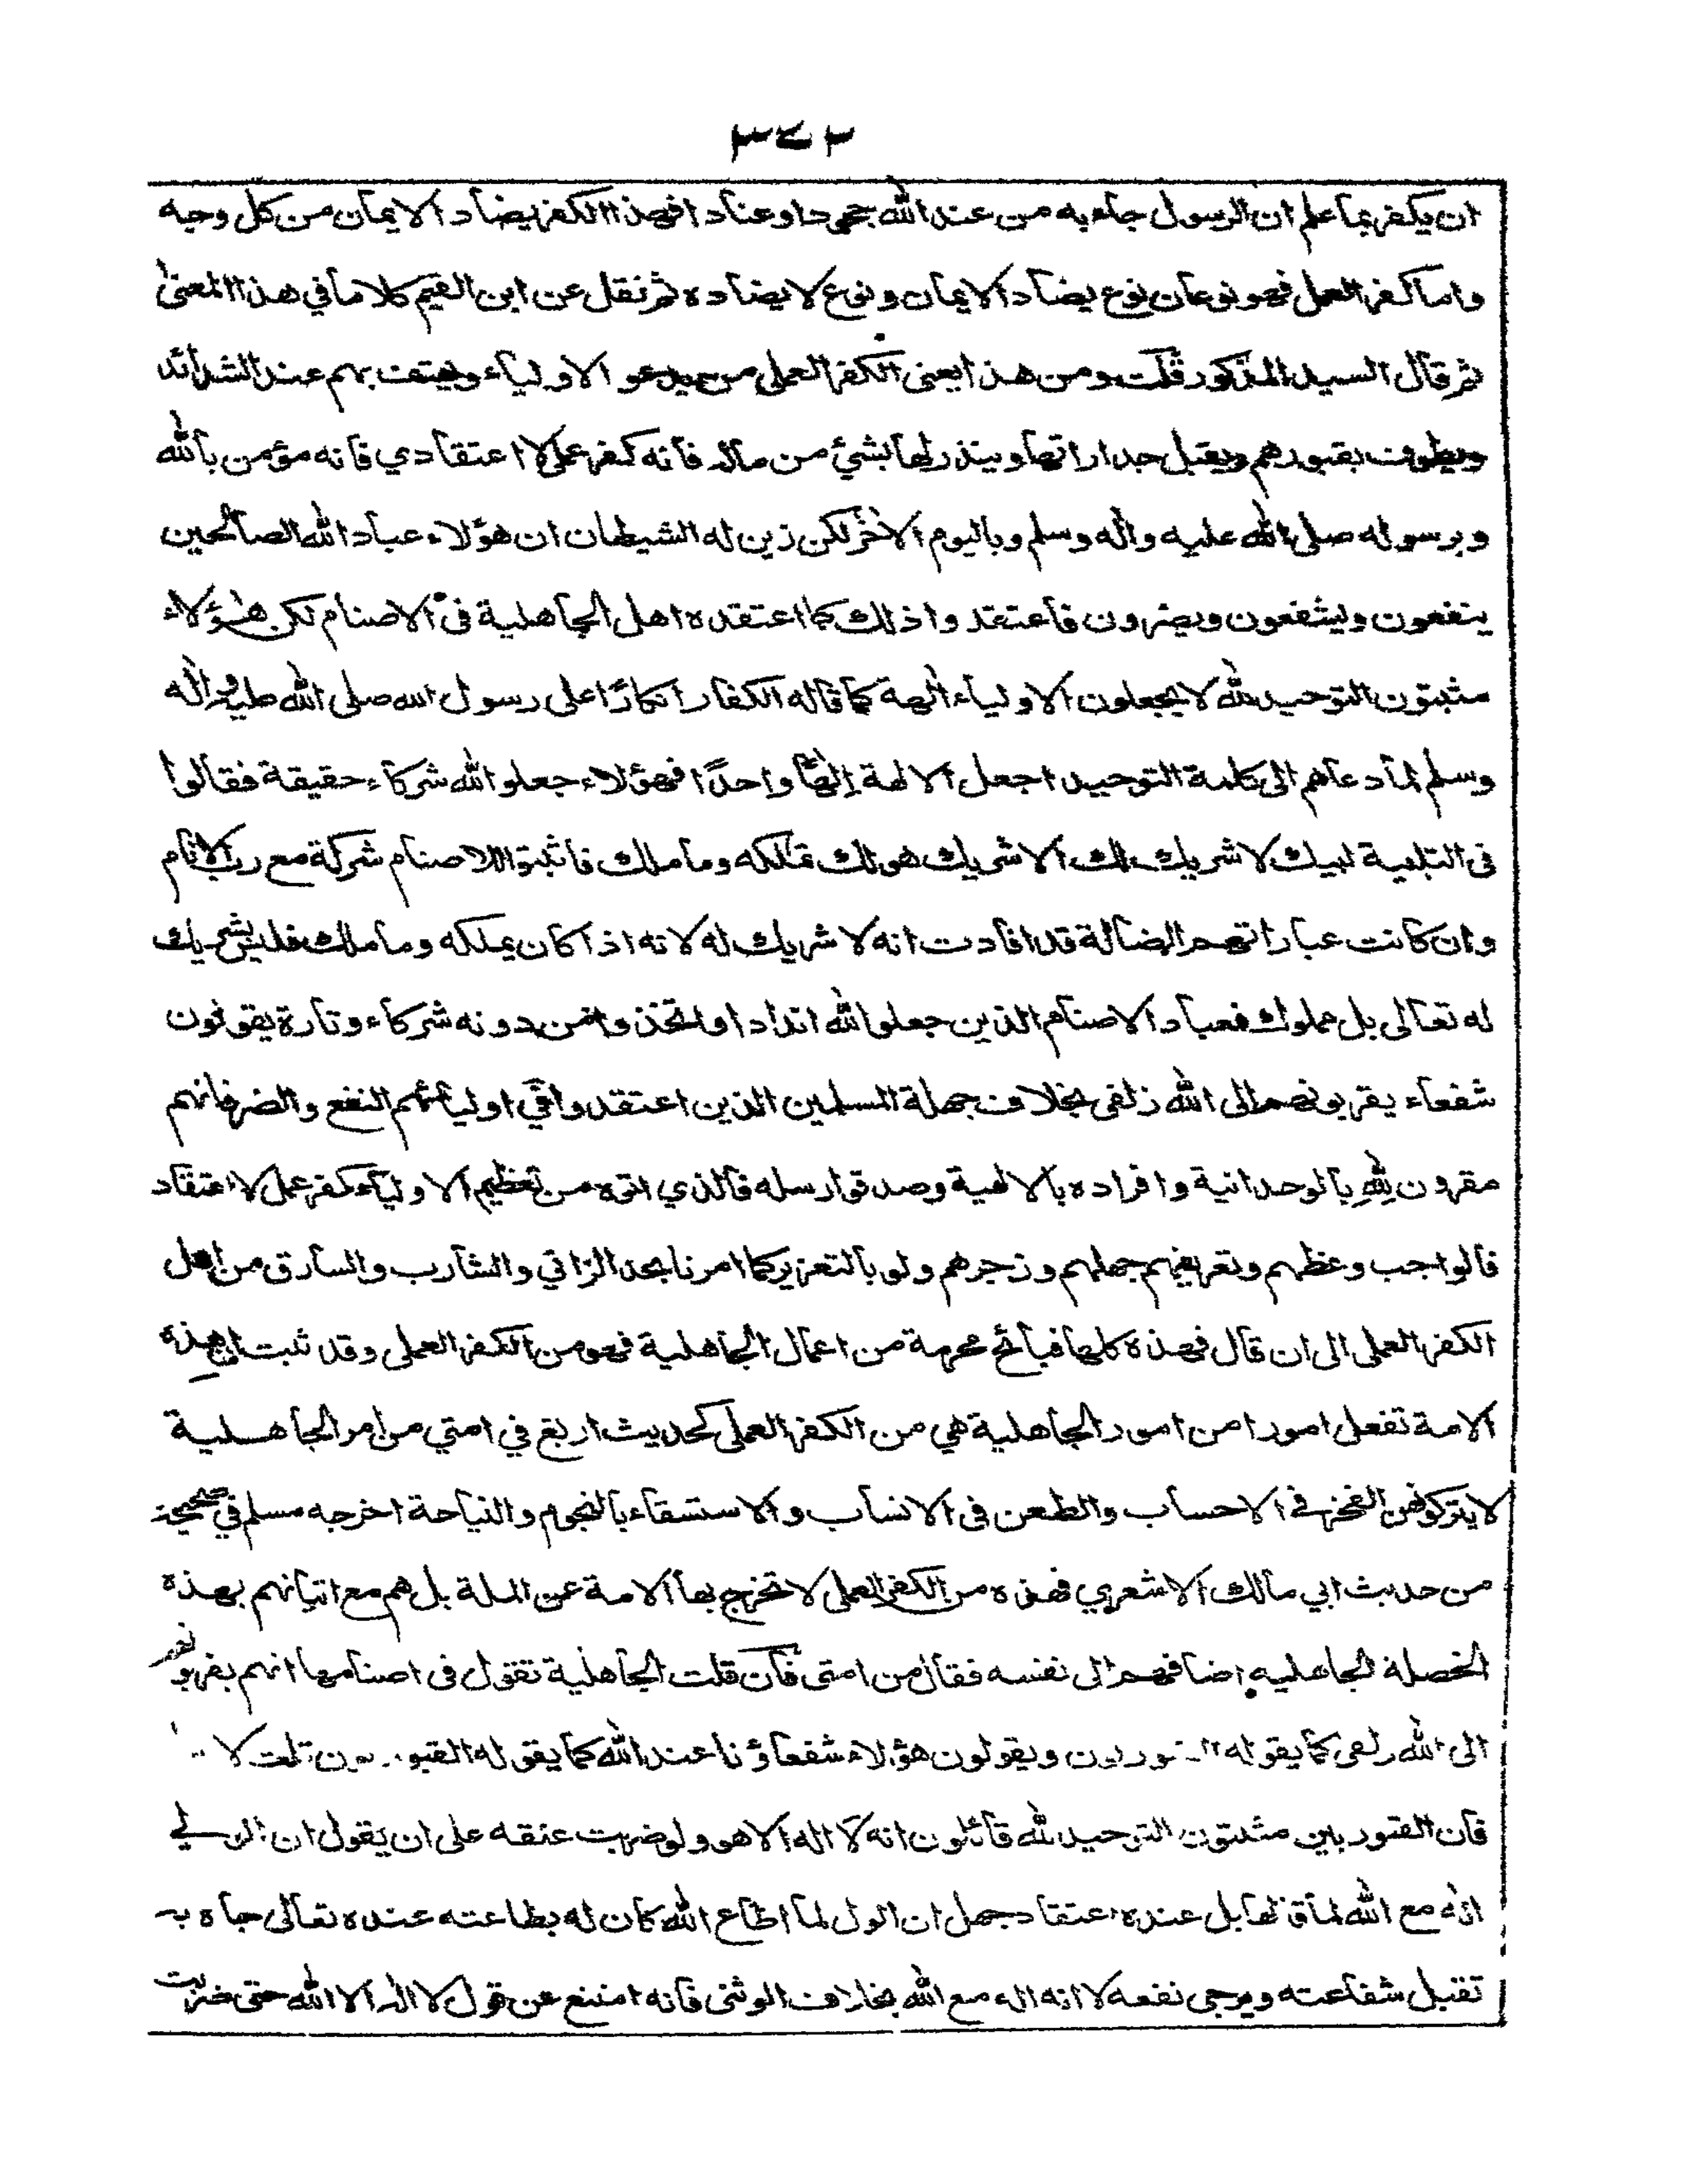 ٣٤٢
ان يكفر بما علم ان الرسول جاء به من عند الله جحودا وعنادا فهذا الكفر يضاد الايمان من كل وجه
واما كفر العمل فهو نوعان نوع يضاد الايمان ونوع لا يضاده ثم نقل عن ابن القيم كلاما في هذا المعنى
ثم قال السيد المذكور قلت ومن هذا يعنى الكفر العملى من يدعو الاولياء ويهتف بهم عند الشدائد
ويطوف بقبورهم ويقبل جداراتها وينذر لها بشئ من ماله فانه كفر عملى لا اعتقادي فانه مؤمن بالله
وبرسوله صلى الله عليه واله وسلم وباليوم الاخر لكن زين له الشيطان ان هؤلاء عباد الله الصالحين
ينفعون ويشفعون ويضرون فاعتقدوا ذلك كما اعتقده اهل الجاهلية فى الاصنام لكن هؤلاء
مثبتون التوحيد لله لا يجعلون الاولياء الهة كما قاله الكفار انكارًا على رسول الله صلى الله عليه واله
وسلم لما دعاهم الى كلمة التوحيد اجعل الالهة إلهًا واحدًا فهؤلاء جعلوا لله شركاء حقيقة فقالوا
فى التلبية لبيك لا شريك لك الا شريك هو لك تملكه وما ملك فاثبتوا للاصنام شركة مع رب الانام
وان كانت عباراتهم الضالة قد افادت انه لا شريك له لانه اذا كان يملكه وما ملك فليس بشريك
له تعالى بل مملوك فعباد الاصنام الذين جعلوا لله اندادا واتخذوا من دونه شركاء وتارة يقولون
شفعاء يقربونهم الى الله زلفى بخلاف جهلة المسلمين الذين اعتقدوا في اوليائهم النفع والضر فانهم
مقرون لِلّهِ بالوحدانية وافراده بالالهية وصدقوا رسله فالذي اتوه من تعظيم الاولياء كفر عمل لا اعتقاد
فالواجب وعظهم وتعريفهم جهلهم وزجرهم ولو بالتعزير كما امرنا بحد الزاني والشارب والسارق من اهل
الكفر العملى الى ان قال فهذه كلها قبائح محرمة من اعمال الجاهلية فهو من الكفر العملى وقد ثبت ان هذه
الامة تفعل امورا من امور الجاهلية هي من الكفر العملى كحديث اربع في امتي من امر الجاهلية
لا يتركونهن الفخر في الاحساب والطعن فى الانساب والاستسقاء بالنجوم والنياحة اخرجه مسلم في صحيحه
من حديث ابي مالك الاشعري فهذه من الكفر العملى لا تخرج بها الامة عن الملة بل هم مع اتيانهم بهذه
الخصلة الجاهليه اضافهم الى نفسه فقال من امتى فان قلت الجاهلية تقول فى اصنامها انهم يقربونهم
الى الله زلفى كما يقوله ويقولون هؤلاء شفعاؤنا عند الله كما يقوله القبوريون قلت لا
فان القبوريين مثبتون التوحيد لله قائلون انه لا اله الا هو ولو ضربت عنقه على ان يقول ان الولي
اله مع الله لما قالها بل عنده اعتقاد جهل ان الولى لما اطاع الله كان له بطاعته عنده تعالى جاه به
تقبل شفاعته ويرجى نفعه لا انه اله مع الله بخلاف الوثنى فانه امتنع عن قول لا اله الا الله حتى ضربت